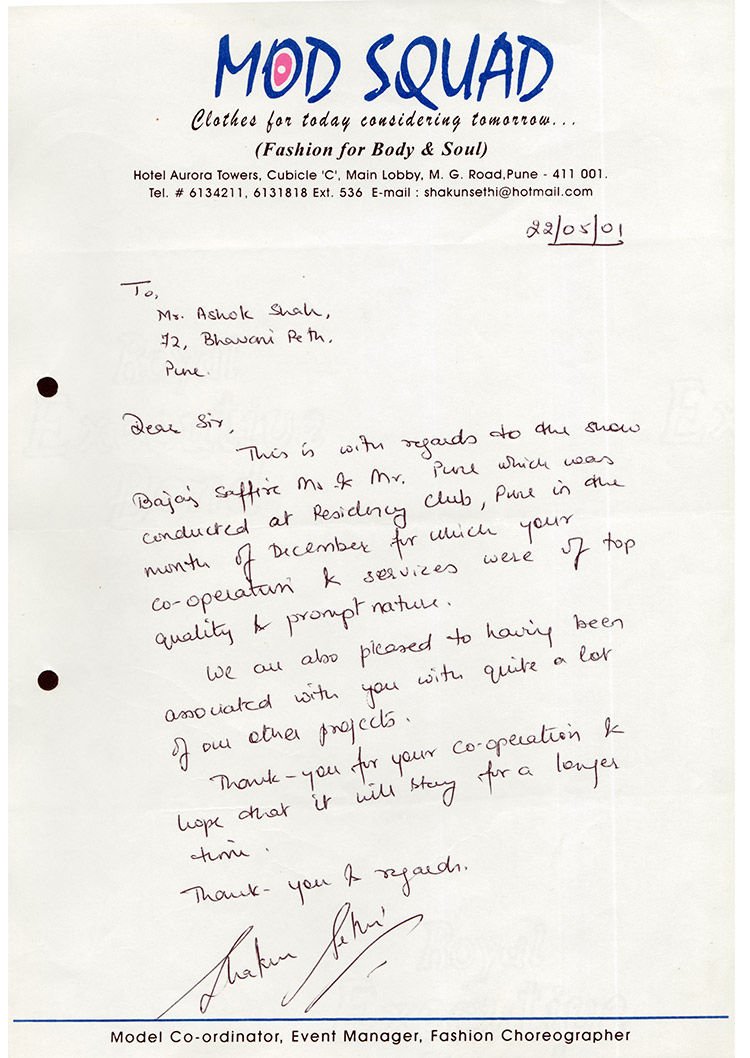 MOD SQUAD
Clothes for today considering tomorrow...
(Fashion for Body & Soul)
Hotel Aurora Towers, Cubicle 'C', Main Lobby, M. G. Road,Pune - 411 001.
Tel. # 6134211, 6131818 Ext. 536 E-mail : shakunsethi@hotmail.com
22/05/01
To,
Mr. Ashok Shah,
72, Bhavani Peth,
Pune.
Dear Sir,
This is with regards to the show
Bajaj Saffire Ms & Mr. Pune which was
conducted at Residency Club, Pune in the
month of December for which your
co-operation & services were of top
quality & prompt nature.
We are also pleased to having been
associated with you with quite a lot
of our other projects.
Thank-you for your co-operation &
hope that it will stay for a longer
time.
Thank-you & regards.
Shakun Sethi
Royal
Executive
Model Co-ordinator, Event Manager, Fashion Choreographer